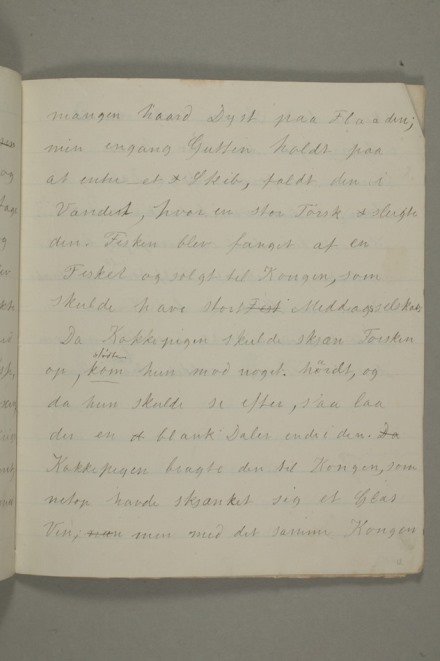 mangen haard Dyst paa Flaaden;
min engang Gutten holdt paa
at entre et Skib, faldt den i
Vandet, hvor en stor Torsk slugte
den. Fisken blev fanget af en
Fisker og solgt til Kongen, som
skulde have stort Fest Middagsselskab.
Da Kokkepigen skulde skjær Torsken
stødte
op, kom hun mod noget hårdt, og
da hun skulde se efter, saa laa
der en blank Daler indei den. Da
Kokkepigen bragte den til Kongen, som
netop havde skjænket sig et Glas
Vin; men med det samme Kongen